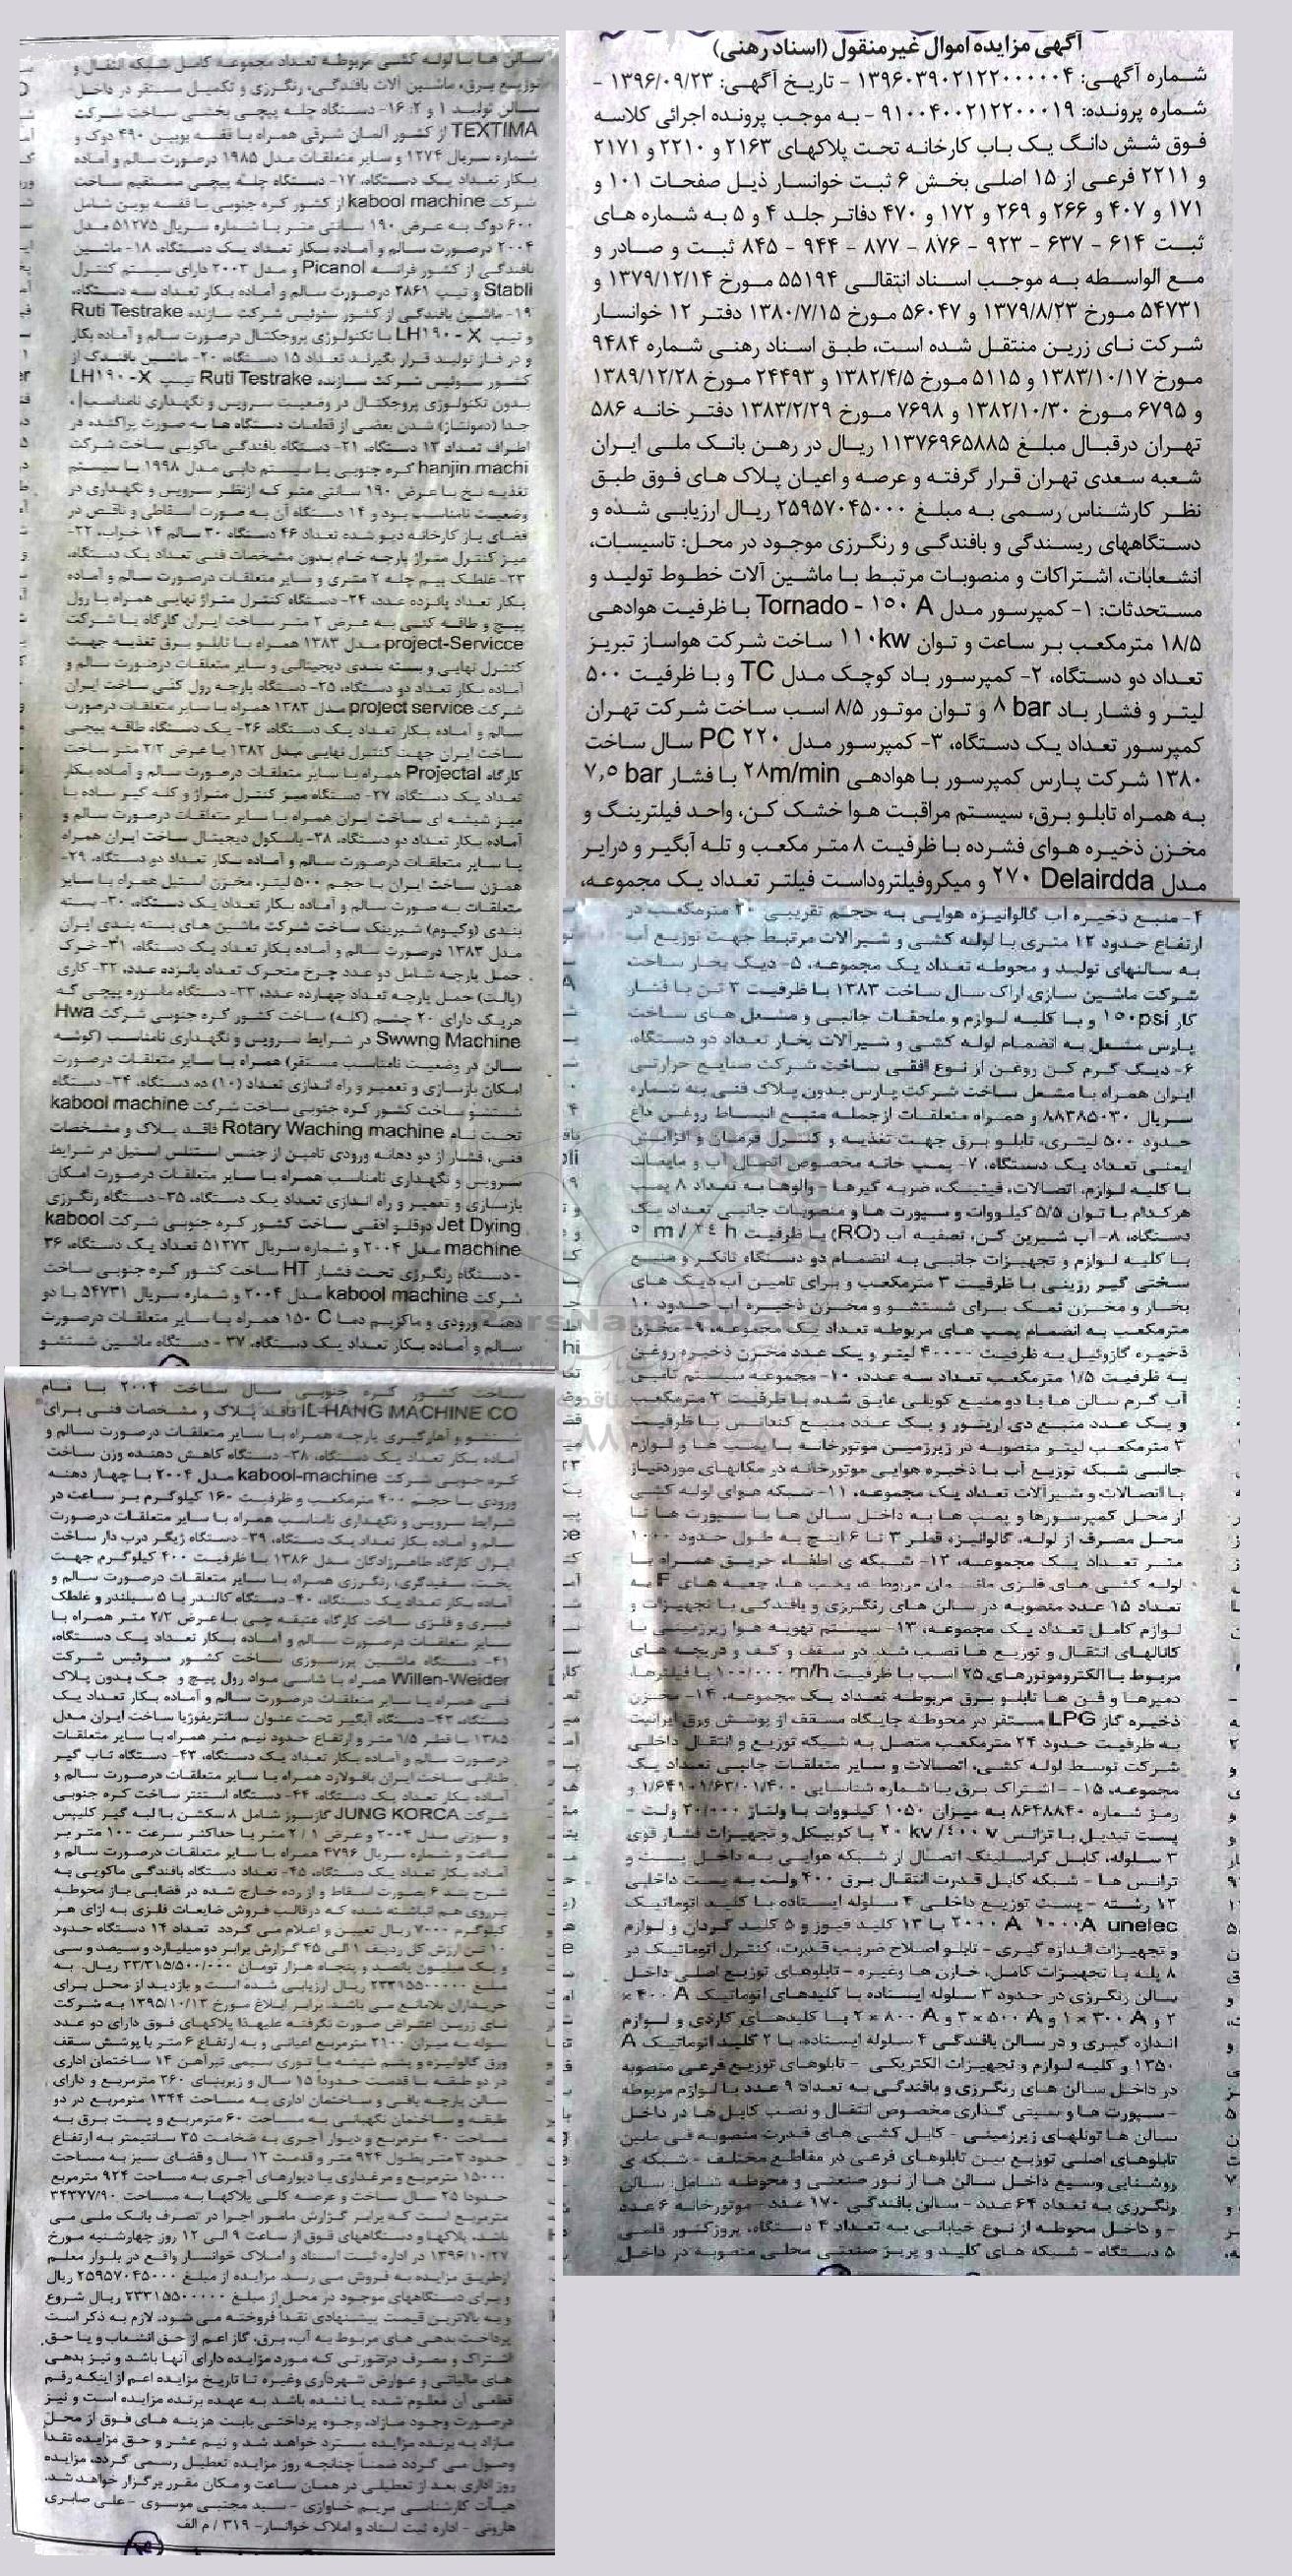 آگهی مزایده اموال غیرمنقول (اسناد رهنی)
شماره آگهی: ۱۳۹۶۰۳۹۰۲۱۲۲۰۰۰۰۰۴ - تاریخ آگهی: ۱۳۹۶/۰۹/۲۳ -
شماره پرونده: ۹۱۰۰۴۰۰۲۱۲۲۰۰۰۱۹ - به موجب پرونده اجرائی کلاسه
فوق شش دانگ یک باب کارخانه تحت پلاکهای ۲۱۶۳ و ۲۲۱۰ و ۲۱۷۱
و ۲۲۱۱ فرعی از ۱۵ اصلی بخش ۶ ثبت خوانسار ذیل صفحات ۱۰۱ و
۱۷۱ و ۴۰۷ و ۲۶۶ و ۲۶۹ و ۱۷۲ و ۴۷۰ دفاتر جلد ۴ و ۵ به شماره های
ثبت ۶۱۴ - ۶۳۷ - ۹۲۳ - ۸۷۶ - ۸۷۷ - ۹۴۴ - ۸۴۵ ثبت و صادر و
مع الواسطه به موجب اسناد انتقالی ۵۵۱۹۴ مورخ ۱۳۷۹/۱۲/۱۴ و
۵۴۷۳۱ مورخ ۱۳۷۹/۸/۲۳ و ۵۶۰۴۷ مورخ ۱۳۸۰/۷/۱۵ دفتر ۱۲ خوانسار
شرکت نای زرین منتقل شده است، طبق اسناد رهنی شماره ۹۴۸۴
مورخ ۱۳۸۳/۱۰/۱۷ و ۵۱۱۵ مورخ ۱۳۸۲/۴/۵ و ۲۴۴۹۳ مورخ ۱۳۸۹/۱۲/۲۸
و ۶۷۹۵ مورخ ۱۳۸۲/۱۰/۳۰ و ۷۶۹۸ مورخ ۱۳۸۳/۲/۲۹ دفتر خانه ۵۸۶
تهران درقبال مبلغ ۱۱۳۷۶۹۶۵۸۸۵ ریال در رهن بانک ملی ایران
شعبه سعدی تهران قرار گرفته و عرصه و اعیان پلاک های فوق طبق
نظر کارشناس رسمی به مبلغ ۲۵۹۵۷۰۴۵۰۰۰ ریال ارزیابی شده و
دستگاههای ریسندگی و بافندگی و رنگرزی موجود در محل: تاسیسات،
انشعابات، اشتراکات و منصوبات مرتبط با ماشین آلات خطوط تولید و
مستحدثات: ۱- کمپرسور مدل Tornado - ۱۵۰ A با ظرفیت هوادهی
۱۸/۵ مترمکعب بر ساعت و توان ۱۱۰kw ساخت شرکت هواساز تبریز
تعداد دو دستگاه، ۲- کمپرسور باد کوچک مدل TC و با ظرفیت ۵۰۰
لیتر و فشار باد ۸ bar و توان موتور ۸/۵ اسب ساخت شرکت تهران
کمپرسور تعداد یک دستگاه، ۳- کمپرسور مدل PC ۲۲۰ سال ساخت
۱۳۸۰ شرکت پارس کمپرسور با هوادهی ۲۸m/min با فشار ۷,۵ bar
به همراه تابلو برق، سیستم مراقبت هوا خشک کن، واحد فیلترینگ و
مخزن ذخیره هوای فشرده با ظرفیت ۸ متر مکعب و تله آبگیر و درایر
مدل Delairdda ۲۷۰ و میکروفیلتروداست فیلتر تعداد یک مجموعه،
۴- منبع ذخیره آب گالوانیزه هوایی به حجم تقریبی ۲۰ مترمکعب در
ارتفاع حدود ۱۲ متری با لوله کشی و شیرآلات مرتبط جهت توزیع آب
به سالنهای تولید و محوطه تعداد یک مجموعه، ۵- دیگ بخار ساخت
شرکت ماشین سازی اراک سال ساخت ۱۳۸۳ با ظرفیت ۳ تن با فشار
کار ۱۵۰psi و با کلیه لوازم و ملحقات جانبی و مشعل های ساخت
پارس مشعل به انضمام لوله کشی و شیرآلات بخار تعداد دو دستگاه،
۶- دیگ گرم کن روغن از نوع افقی ساخت شرکت صنایع حرارتی
ایران همراه با مشعل ساخت شرکت پارس بدون پلاک فنی به شماره
سریال ۸۸۳۸۵۰۳۰ و همراه متعلقات ازجمله منبع انبساط روغن داغ
حدود ۵۰۰ لیتری، تابلو برق جهت تغذیه و کنترل فرمان و افزایش
ایمنی تعداد یک دستگاه، ۷- پمپ خانه مخصوص اتصال آب و مایعات
با کلیه لوازم، اتصالات، فیتینگ، ضربه گیرها - والوها به تعداد ۸ پمپ
هرکدام با توان ۵/۵ کیلووات و سپورت ها و منصوبات جانبی تعداد یک
بخار و مخزن نمک برای شستشو و مخزن ذخیره آب حدود ۱۰
مترمکعب به انضمام پمپ های مربوطه تعداد یک مجموعه، ۹- مخزن
ذخیره گازوئیل به ظرفیت ۴۰۰۰۰ لیتر و یک عدد مخزن ذخیره روغن
به ظرفیت ۱/۵ مترمکعب تعداد سه عدد، ۱۰- مجموعه سیستم تامین
جانبی شبکه توزیع آب با ذخیره هوایی موتورخانه در مکانهای موردنیاز
با اتصالات و شیرآلات تعداد یک مجموعه، ۱۱- شبکه هوای لوله کشی
از محل کمپرسورها و پمپ ها به داخل سالن ها با سپورت ها تا
محل مصرف از لوله، گالوانیزه، قطر ۳ تا ۶ اینچ به طول حدود ۱۰۰۰
تعداد ۱۵ عدد منصوبه در سالن های رنگرزی و بافندگی با تجهیزات و
لوازم کامل تعداد یک مجموعه، ۱۳- سیستم تهویه هوا زیرزمینی با
ذخیره گاز LPG مستقر در محوطه جایگاه مسقف از پوشش ورق ایرانیت
به ظرفیت حدود ۲۴ مترمکعب متصل به شبکه توزیع و انتقال داخلی
شرکت توسط لوله کشی، اتصالات و سایر متعلقات جانبی تعداد یک
در داخل سالن های رنگرزی و بافندگی به تعداد ۹ عدد با لوازم مربوطه
رنگرزی به تعداد ۶۴ عدد - سالن بافندگی ۱۷۰ عدد - موتورخانه ۶ عدد
- و داخل محوطه از نوع خیابانی به تعداد ۴ دستگاه، پروژکتور قلمی
۵ دستگاه - شبکه های کلید و پریز صنعتی محلی منصوبه در داخل
سالن ها با لوله کشی مربوطه تعداد مجموعه کامل شبکه انتقال و
توزیع برق، ماشین آلات بافندگی، رنگرزی و تکمیل مستقر در داخل
سالن تولید ۱ و ۲: ۱۶- دستگاه چله پیچی بخشی ساخت شرکت
TEXTIMA از کشور آلمان شرقی همراه با قفسه بوبین ۴۹۰ دوک و
شماره سریال ۱۲۷۴ و سایر متعلقات مدل ۱۹۸۵ درصورت سالم و آماده
بکار تعداد یک دستگاه، ۱۷- دستگاه چله پیچی مستقیم ساخت
شرکت kabool machine از کشور کره جنوبی با قفسه بوبین شامل
۶۰۰ دوک به عرض ۱۹۰ سانتی متر با شماره سریال ۵۱۲۷۵ مدل
۲۰۰۴ درصورت سالم و آماده بکار تعداد یک دستگاه، ۱۸- ماشین
بافندگی از کشور فرانسه Picanol و مدل ۲۰۰۳ دارای سیستم کنترل
Stabli و تیپ ۲۸۶۱ درصورت سالم و آماده بکار تعداد سه دستگاه،
۱۹- ماشین بافندگی از کشور سوئیس شرکت سازنده Ruti Testrake
و تیپ LH۱۹۰-X با تکنولوژی پروجکتال درصورت سالم و آماده بکار
و در فاز تولید قرار بگیرند تعداد ۱۵ دستگاه، ۲۰- ماشین بافندگی از
کشور سوئیس شرکت سازنده Ruti Testrake تیپ LH۱۹۰-X
جدا (دمونتاژ) شدن بعضی از قطعات دستگاه ها به صورت پراکنده در
اطراف تعداد ۱۳ دستگاه، ۲۱- دستگاه بافندگی ماکویی ساخت شرکت
hanjin machi کره جنوبی با سیستم دابی مدل ۱۹۹۸ با سیستم
تغذیه نخ با عرض ۱۹۰ سانتی متر که ازنظر سرویس و نگهداری در
وضعیت نامناسب بود و ۱۴ دستگاه آن به صورت اسقاطی و ناقص در
فضای باز کارخانه دپو شده تعداد ۴۶ دستگاه، ۳۰ سالم ۱۴ خراب، ۲۲-
میز کنترل متراژ پارچه خام بدون مشخصات فنی تعداد یک دستگاه،
۲۳- غلطک بیم چله ۲ متری و سایر متعلقات درصورت سالم و آماده
بکار تعداد پانزده عدد، ۲۴- دستگاه کنترل متراژ نهایی همراه با رول
پیچ و طاقه کنی به عرض ۲ متر ساخت ایران کارگاه یا شرکت
project-Servicce مدل ۱۳۸۳ همراه با تابلو برق تغذیه جهت
کنترل نهایی و بسته بندی دیجیتالی و سایر متعلقات درصورت سالم و
آماده بکار تعداد دو دستگاه، ۲۵- دستگاه پارچه رول کنی ساخت ایران
شرکت project service مدل ۱۳۸۳ همراه با سایر متعلقات درصورت
سالم و آماده بکار تعداد یک دستگاه، ۲۶- یک دستگاه طاقه پیچی
ساخت ایران جهت کنترل نهایی مدل ۱۳۸۲ با عرض ۲/۲ متر ساخت
کارگاه Projectal همراه با سایر متعلقات درصورت سالم و آماده بکار
تعداد یک دستگاه، ۲۷- دستگاه میز کنترل متراژ و کله گیر ساده با
میز شیشه ای ساخت ایران همراه با سایر متعلقات درصورت سالم و
آماده بکار تعداد دو دستگاه، ۲۸- باسکول دیجیتال ساخت ایران همراه
با سایر متعلقات درصورت سالم و آماده بکار تعداد دو دستگاه، ۲۹-
همزن ساخت ایران با حجم ۵۰۰ لیتر، مخزن استیل همراه با سایر
متعلقات به صورت سالم و آماده بکار تعداد یک دستگاه، ۳۰- بسته
بندی (وکیوم) شیرینک ساخت شرکت ماشین های بسته بندی ایران
مدل ۱۳۸۳ درصورت سالم و آماده بکار تعداد یک دستگاه، ۳۱- خرک
حمل پارچه شامل دو عدد چرخ متحرک تعداد پانزده عدد، ۳۲- گاری
(پالت) حمل پارچه تعداد چهارده عدد، ۳۳- دستگاه ماسوره پیچی که
هریک دارای ۲۰ چشم (کله) ساخت کشور کره جنوبی شرکت Hwa
Swwng Machine در شرایط سرویس و نگهداری نامناسب (گوشه
سالن در وضعیت نامناسب مستقر) همراه با سایر متعلقات درصورت
امکان بازسازی و تعمیر و راه اندازی تعداد (۱۰) ده دستگاه، ۳۴- دستگاه
شستشو ساخت کشور کره جنوبی ساخت شرکت kabool machine
تحت نام Rotary Waching machine فاقد پلاک و مشخصات
فنی، فشار از دو دهانه ورودی تامین از جنس استنلس استیل در شرایط
سرویس و نگهداری نامناسب همراه با سایر متعلقات درصورت امکان
بازسازی و تعمیر و راه اندازی تعداد یک دستگاه، ۳۵- دستگاه رنگرزی
Jet Dying دوقلو افقی ساخت کشور کره جنوبی شرکت kabool
machine مدل ۲۰۰۴ و شماره سریال ۵۱۲۷۳ تعداد یک دستگاه، ۳۶
- دستگاه رنگرزی تحت فشار HT ساخت کشور کره جنوبی ساخت
شرکت kabool machine مدل ۲۰۰۴ و شماره سریال ۵۴۷۳۱ با دو
دهنه ورودی و ماکزیم دما ۱۵۰ C همراه با سایر متعلقات درصورت
سالم و آماده بکار تعداد یک دستگاه، ۳۷- دستگاه ماشین شستشو
ساخت کشور کره جنوبی سال ساخت ۲۰۰۴ با نام
IL-HANG MACHINE CO فاقد پلاک و مشخصات فنی برای
شستشو و آهارگیری پارچه همراه با سایر متعلقات درصورت سالم و
آماده بکار تعداد یک دستگاه، ۳۸- دستگاه کاهش دهنده وزن ساخت
کره جنوبی شرکت kabool-machine مدل ۲۰۰۴ با چهار دهنه
ورودی با حجم ۴۰۰ مترمکعب و ظرفیت ۱۶۰ کیلوگرم بر ساعت در
شرایط سرویس و نگهداری نامناسب همراه با سایر متعلقات درصورت
سالم و آماده بکار تعداد یک دستگاه، ۳۹- دستگاه ژیگر درب دار ساخت
ایران کارگاه طاهرزادگان مدل ۱۳۸۶ با ظرفیت ۴۰۰ کیلوگرم جهت
پخت، سفیدگری، رنگرزی همراه با سایر متعلقات درصورت سالم و
آماده بکار تعداد یک دستگاه، ۴۰- دستگاه کالندر با ۵ سیلندر و غلطک
سایر متعلقات درصورت سالم و آماده بکار تعداد یک دستگاه،
۴۱- دستگاه ماشین پرزسوزی ساخت کشور سوئیس شرکت
۱۳۸۵ با قطر ۱/۵ متر و ارتفاع حدود نیم متر همراه با سایر متعلقات
درصورت سالم و آماده بکار تعداد یک دستگاه، ۴۳- دستگاه تاب گیر
طنابی ساخت ایران بافولارد همراه با سایر متعلقات درصورت سالم و
آماده بکار تعداد یک دستگاه، ۴۴- دستگاه استنتر ساخت کره جنوبی
شرکت JUNG KORCA گازسوز شامل ۸ سکشن با لبه گیر کلیپس
ساعت و شماره سریال ۴۷۹۶ همراه با سایر متعلقات درصورت سالم و
آماده بکار تعداد یک دستگاه، ۴۵- تعداد دستگاه بافندگی ماکویی به
شرح بند ۶ بصورت اسقاط و از رده خارج شده در فضایی باز محوطه
برروی هم انباشته شده که درقالب فروش ضایعات فلزی به ازای هر
کیلوگرم ۷۰۰۰ ریال تعیین و اعلام می گردد تعداد ۱۴ دستگاه حدود
۱۰ تن ارزش کل ردیف ۱ الی ۴۵ گزارش برابر دو میلیارد و سیصد و سی
و یک میلیون پانصد و پنجاه هزار تومان ۲۳/۳۱۵/۵۰۰/۰۰۰ ریال. به
مبلغ ۲۳۳۱۵۵۰۰۰۰۰ ریال ارزیابی شده است و بازدید از محل برای
خریداران بلامانع می باشد. برابر ابلاغ مورخ ۱۳۹۵/۱۰/۱۳ به شرکت
نای زرین اعتراض صورت نگرفته علیهذا پلاکهای فوق دارای دو عدد
سوله به میزان ۲۱۰۰ مترمربع اعیانی و به ارتفاع ۶ متر با پوشش سقف
ورق گالوانیزه و پشم شیشه با توری سیمی تیرآهن ۱۴ ساختمان اداری
در دو طبقه با قدمت حدوداً ۱۵ سال و زیربنای ۲۶۰ مترمربع و دارای
سالن پارچه بافی و ساختمان اداری به مساحت ۱۳۴۴ مترمربع در دو
طبقه و ساختمان نگهبانی به مساحت ۶۰ مترمربع و پست برق به
مساحت ۴۰ مترمربع و دیوار آجری به ضخامت ۳۵ سانتیمتر به ارتفاع
حدود ۳ متر بطول ۹۲۴ متر و قدمت ۱۲ سال و فضای سبز به مساحت
۱۵۰۰۰ مترمربع و مرغداری با دیوارهای آجری به مساحت ۹۲۴ مترمربع
حدودا ۲۵ سال ساخت و عرصه کلی پلاکها به مساحت ۳۴۳۷۷/۹۰
مترمربع است که برابر گزارش مامور اجرا در تصرف بانک ملی می
باشد، پلاکها و دستگاههای فوق از ساعت ۹ الی ۱۲ روز چهارشنبه مورخ
۱۳۹۶/۱۰/۲۷ در اداره ثبت اسناد و املاک خوانسار واقع در بلوار معلم
ازطریق مزایده به فروش می رسد. مزایده از مبلغ ۲۵۹۵۷۰۴۵۰۰۰ ریال
و برای دستگاههای موجود در محل از مبلغ ۲۳۳۱۵۵۰۰۰۰۰ ریال شروع
و به بالاترین قیمت پیشنهادی نقدا فروخته می شود. لازم به ذکر است
پرداخت بدهی های مربوط به آب، برق، گاز اعم از حق انشعاب و یا حق
اشتراک و مصرف درصورتی که مورد مزایده دارای آنها باشد و نیز بدهی
های مالیاتی و عوارض شهرداری وغیره تا تاریخ مزایده اعم از اینکه رقم
قطعی آن معلوم شده یا نشده باشد به عهده برنده مزایده است و نیز
درصورت وجود مازاد، وجوه پرداختی بابت هزینه های فوق از محل
مازاد به برنده مزایده مسترد خواهد شد و نیم عشر و حق مزایده نقدا
وصول می گردد ضمناً چنانچه روز مزایده تعطیل رسمی گردد، مزایده
روز اداری بعد از تعطیلی در همان ساعت و مکان مقرر برگزار خواهد شد.
هیأت کارشناسی مریم خاوازی - سید مجتبی موسوی - علی صابری
هارونی - اداره ثبت اسناد و املاک خوانسار - ۳۱۹ / م الف